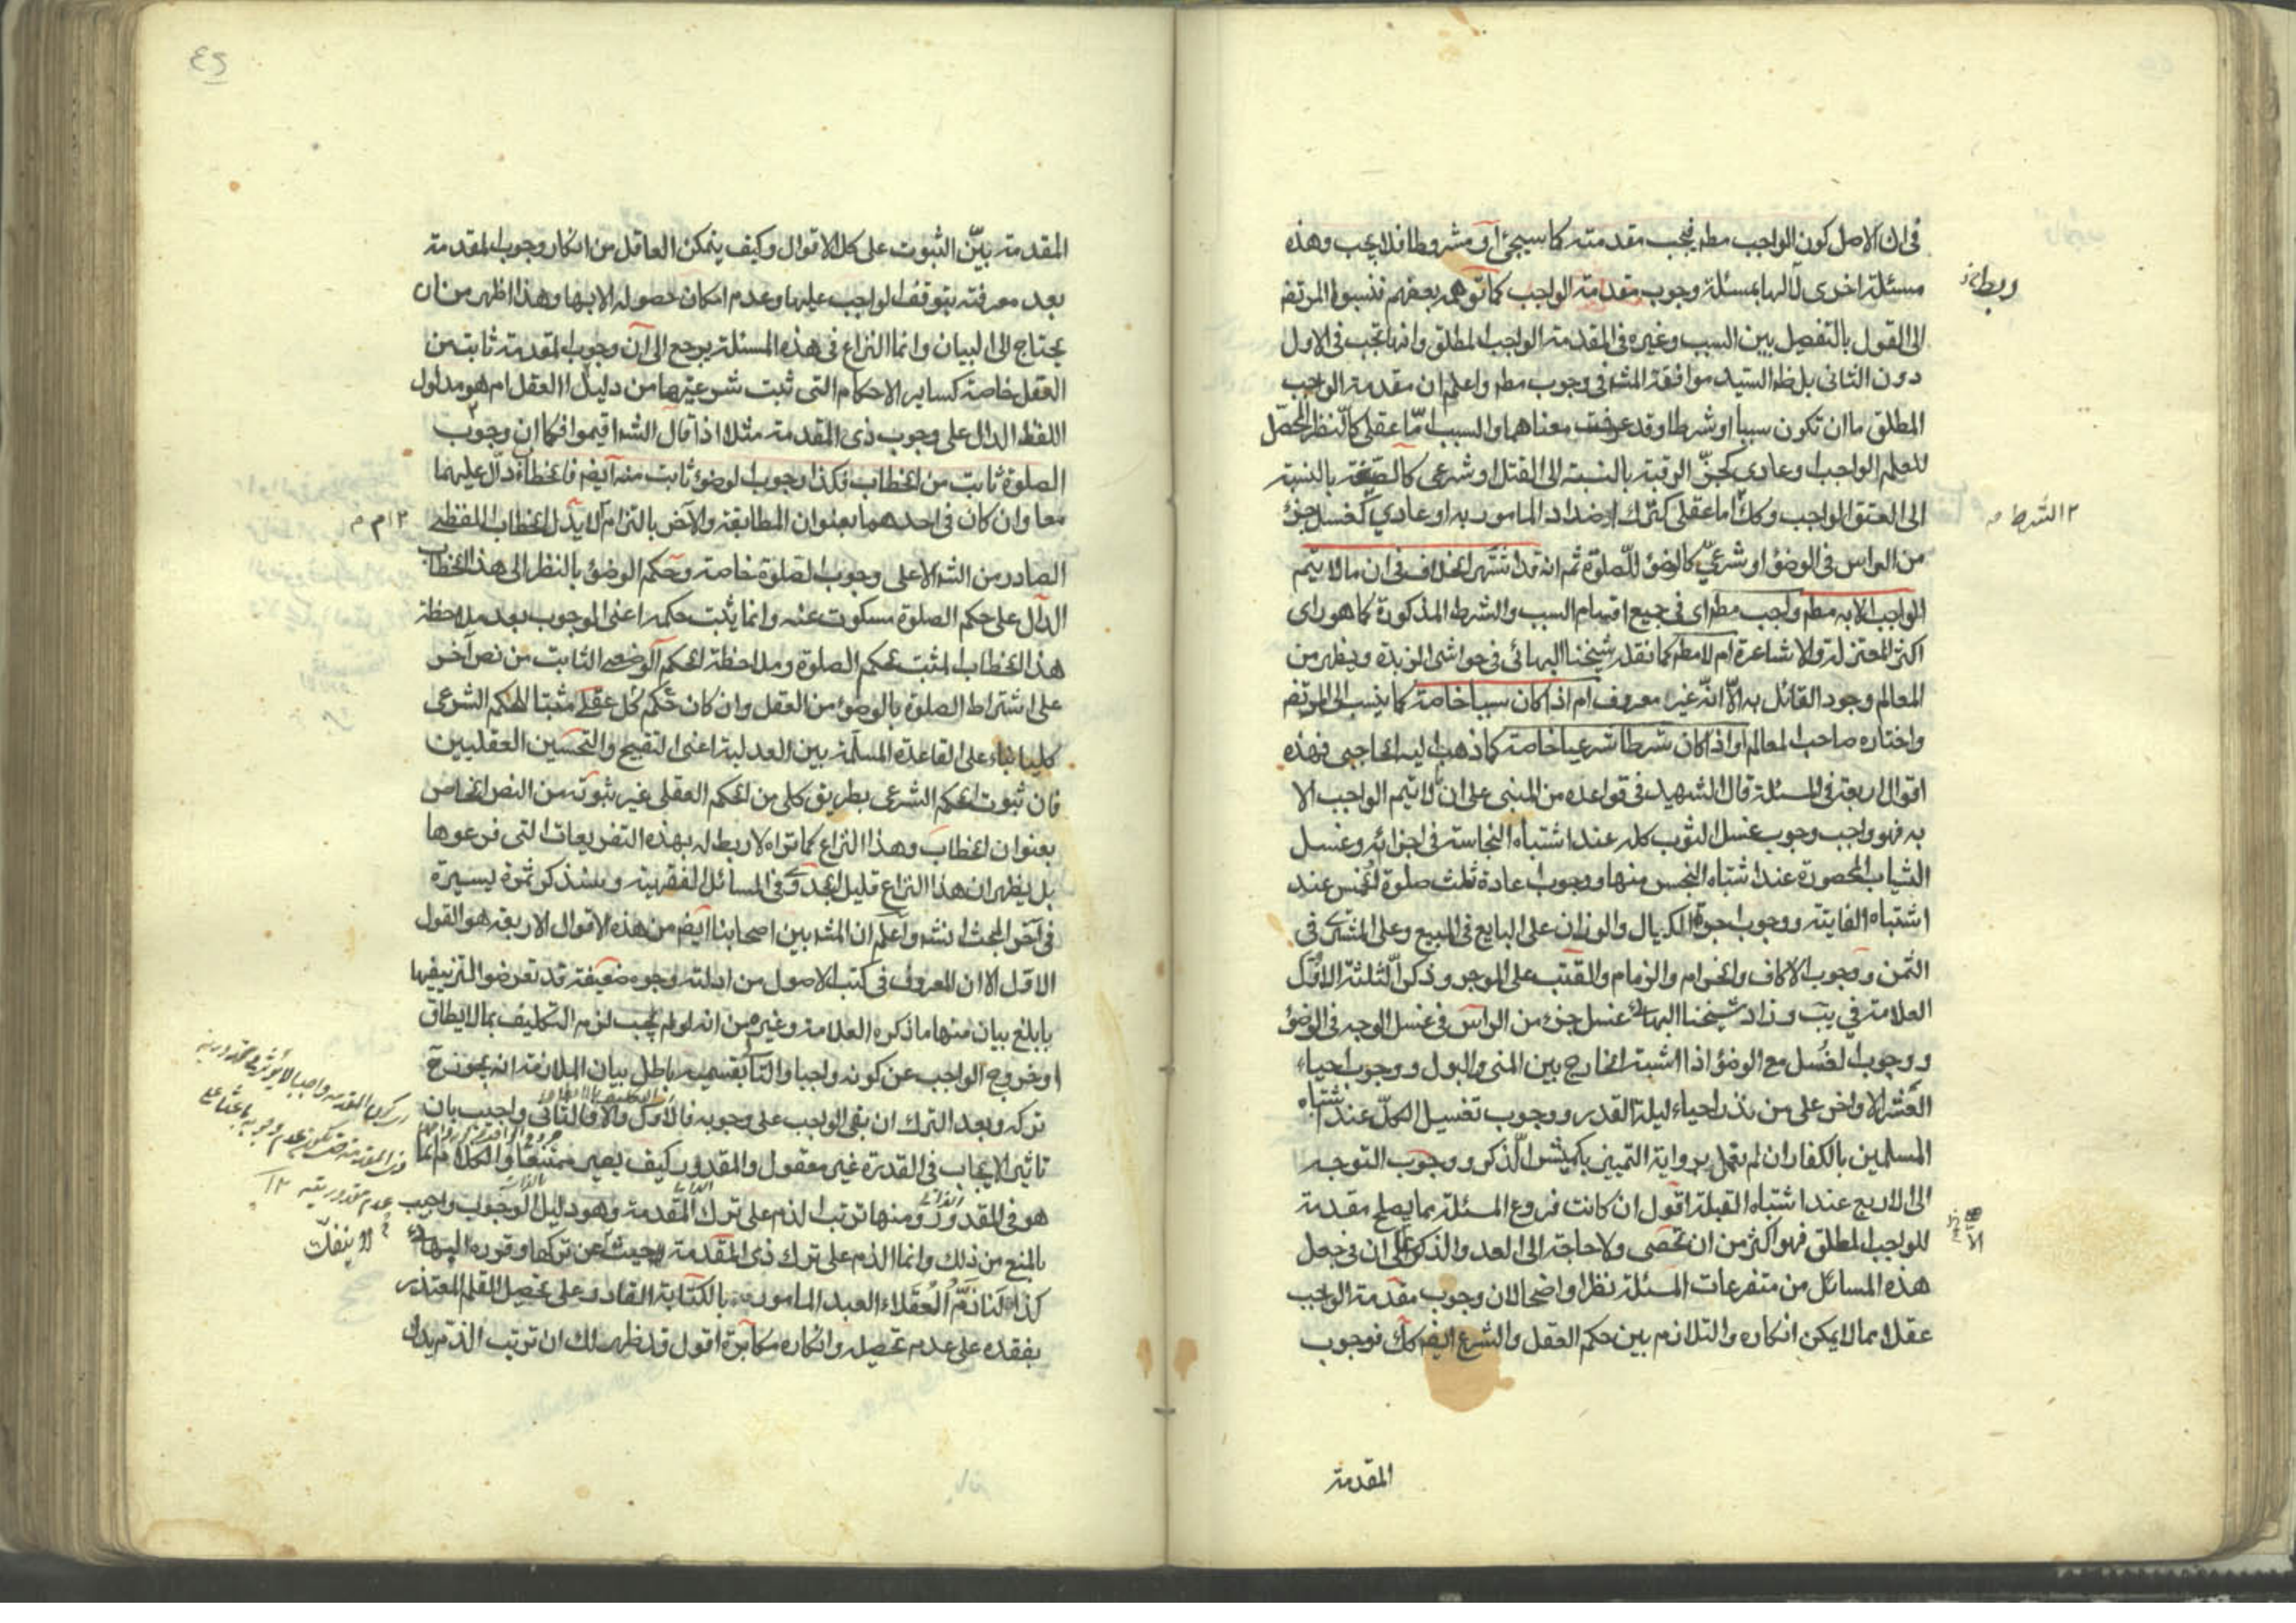 في ان الاصل كون الواجب مطم فيجب مقدمته كما سيجئ او مشروطا فلا يجب وهذه
مسئلة اخرى لا لها بمسئلة وجوب مقدمة الواجب كما توهمه بعضهم فنسبوا المرتضى
ربط
الى القول بالتفصيل بين السبب وغيره في المقدمة الواجب المطلق وانها تجب في الاول
دون الثاني بل ظ السيد موافقة المشه في وجوب مطم واعلم ان مقدمة الواجب
المطلق اما ان تكون سببا او شرطا وقد عرفت معناهما والسبب اما عقلي كالنظر المحصل
للعلم الواجب وعادي كجز الرقبة بالنسبة الى القتل او شرعي كالصيغة بالنسبة
الى العتق الواجب وكك اما عقلي كترك اضداد المامور به او عادي كغسل جزء
٢ الشرط
من الراس في الوضوء او شرعي كالوضوء للصلوة ثم انه قد اشتهر الخلاف في ان ما لا يتم
الواجب الا به مطم واجب مطم اى في جميع اقسام السبب والشرط المذكورة كما هو راى
اكثر المعتزلة والاشاعرة ام لا مطم كما نقله شيخنا البهائي في حواشي الزبدة ويظهر من
المعالم وجود القائل به الا انه غير معروف ام اذا كان سببا خاصة كما ينسب الى المرتضى
واختاره صاحب المعالم او اذا كان شرطا شرعيا خاصة كما ذهب اليه الحاجبي فهذه
اقوال اربعة في المسئلة قال الشهيد في قواعده من المبنى على ان ما لا يتم الواجب الا
به فهو واجب وجوب غسل الثوب كله عند اشتباه النجاسة في اجزائه وغسل
الثياب المحصورة عند اشتباه النجس منها ووجوب اعادة ثلث صلوة الخمس عند
اشتباه الفايتة ووجوب اجرة الكيال والوزان على البايع في المبيع وعلى المشتري في
الثمن ووجوب الاكاف والحزام والزمام والقتب على الموجر وذكر الثلثة الاول
العلامة في يب وزاد شيخنا البهائي غسل جزء من الراس في غسل الوجه في الوضوء
ووجوب الغسل مع الوضوء اذا اشتبه الخارج بين المني والبول ووجوب احياء
العشر الاواخر على من نذر احياء ليلة القدر ووجوب تغسيل الكل عند اشتباه
المسلمين بالكفار ان لم يعمل برواية التمييز بكميش الذكر ووجوب التوجه
الى الاربع عند اشتباه القبلة اقول ان كانت فروع المسئلة بما يصلح مقدمة
للواجب المطلق فهو اكثر من ان تحصى ولا حاجة الى العد والذكر على ان في جعل
الا
هذه المسائل من متفرعات المسئلة نظرا واضحا لان وجوب مقدمة الواجب
عقلا مما لا يمكن انكاره والتلازم بين حكم العقل والشرع ايضم كك فوجوب
المقدمة
٤٥
المقدمة بين الثبوت على كل الاقوال وكيف يتمكن العاقل من انكار وجوب المقدمة
بعد معرفته بتوقف الواجب عليها وعدم امكان حصوله الا بها وهذا اظهر من ان
يحتاج الى البيان وانما النزاع في هذه المسئلة يرجع الى ان وجوب المقدمة ثابت من
العقل خاصة كساير الاحكام التي ثبت شرعيتها من دليل العقل ام هو مدلول
اللفظ الدال على وجوب ذي المقدمة مثلا اذا قال الشه اقيموا فكما ان وجوب
الصلوة ثابت من الخطاب فكذا وجوب الوضوء ثابت منه ايضم فالخطاب دال عليهما
معا وان كان في احدهما بعنوان المطابقة والاخر بالتزام لا يدل الخطاب اللفظي
٢ ام م
الصادر من الشه الا على وجوب الصلوة خاصة وحكم الوضوء بالنظر الى هذا الخطاب
الدال على حكم الصلوة مسكوت عنه وانما يثبت حكمه اعني الوجوب بعد ملاحظة
هذا الخطاب المثبت لحكم الصلوة وملاحظة الحكم الوضعي الثابت من نص آخر
على اشتراط الصلوة بالوضوء من العقل وان كان حكم كل عقلي مثبتا للحكم الشرعي
كليا بناء على القاعدة المسلمة بين العدلية اعني التقبيح والتحسين العقليين
فان ثبوت الحكم الشرعي بطريق كلي من الحكم العقلي غير ثبوته من النص الخاص
بعنوان الخطاب وهذا النزاع كما تراه لا ربط له بهذه التفريعات التي فرعوها
بل يظهر ان هذا النزاع قليل الجدوى في المسائل الفقهية وسنذكر ثمرة يسيرة
في آخر المبحث انشه واعلم ان المشه بين اصحابنا ايضم من هذه الاقوال الاربعة هو القول
الاول الا ان المعروف في كتب الاصول من ادلته وجوه ضعيفة قد تعرضوا لتزييفها
بابلغ بيان منها ما ذكره العلامة وغيره من انه لو لم يجب لزم التكليف بما لا يطاق
او خروج الواجب عن كونه واجبا والتالي بقسميه باطل بيان الملازمة انه يجوز ح
تركه وبعد الترك ان بقي الواجب على وجوبه فالاول والا فالثاني واجيب بان
تاثير الايجاب في القدرة غير معقول والمقدور كيف يصير ممتنعا والكلام انما
هو في المقدور ومنها ترتب الذم على ترك المقدمة وهو دليل الوجوب واجيب
بالمنع من ذلك وانما الذم على ترك ذي المقدمة وحيث عن تركها وقرره البهائي
لا ينفك
كذا لنا ذم العقلاء العبد المامور بالكتابة القادر على تحصيل القلم المعتذر
بفقده على عدم تحصيله وانكاره مكابرة اقول قد ظهر لك ان ترتب الذم يدل